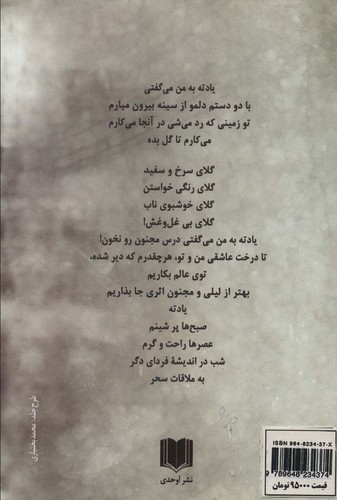 یادته به من می‌گفتی
با دو دستم دلمو از سینه بیرون میارم
تو زمینی که رد می‌شی در آنجا می‌کارم
می‌کارم تا گل بده
گلای سرخ و سفید
گلای رنگی خواستن
گلای خوشبوی ناب
گلای بی غل‌وغش!
یادته به من می‌گفتی درس مجنون رو نخون!
تا درخت عاشقی من و تو، هرچقدرم که دیر شده،
توی عالم بکاریم
بهتر از لیلی و مجنون اثری جا بذاریم
یادته
صبح‌ها پر شینم
عصرها راحت و گرم
شب در اندیشهٔ فردای دگر
به ملاقات سحر
طرح جلد: محمد بختیاری
نشر اوحدی
ISBN 964-8234-37-X
9 789648 234374
قیمت ۹۵۰۰۰ تومان